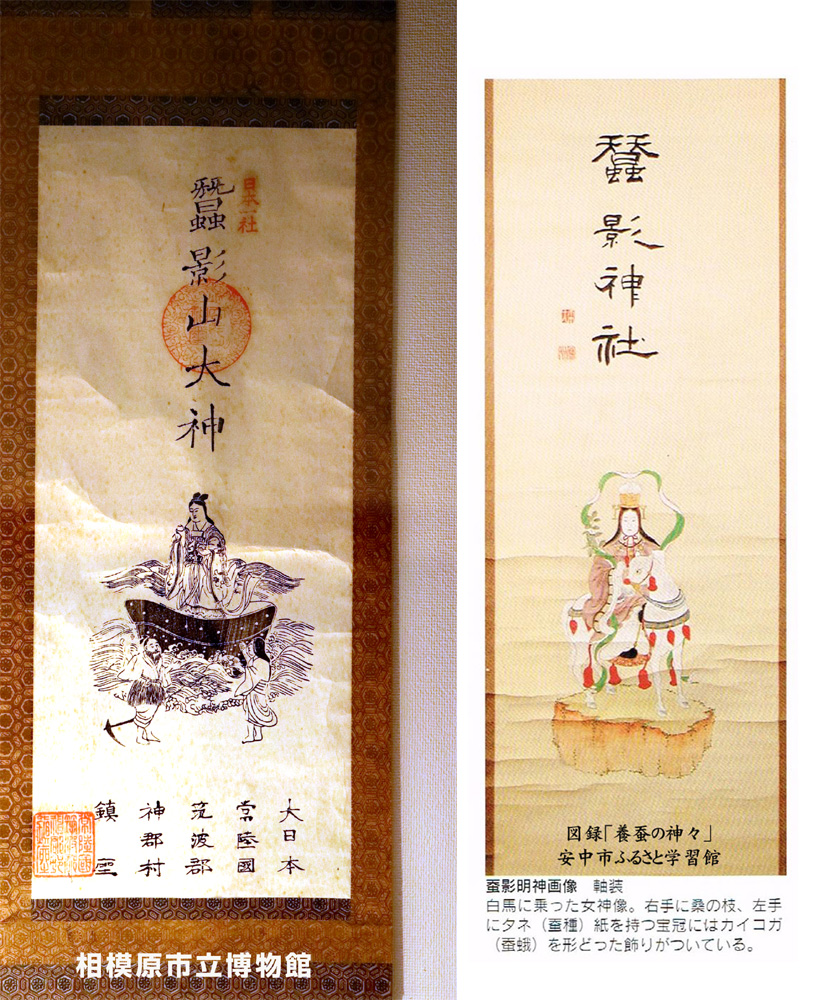 日本一社
蠶影山大神
大日本
常陸國
筑波郡
神郡村
鎮座
相模原市立博物館
蠶影神社
図録「養蚕の神々」
安中市ふるさと学習館
蚕影明神画像　軸装
白馬に乗った女神像。右手に桑の枝、左手
にタネ（蚕種）紙を持つ宝冠にはカイコガ
（蚕蛾）を形どった飾りがついている。